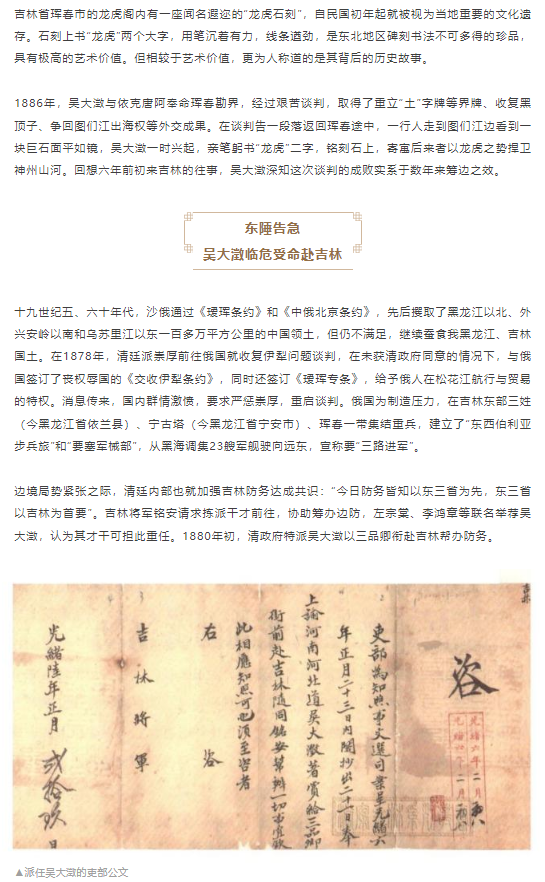 吉林省珲春市的龙虎阁内有一座闻名遐迩的“龙虎石刻”，自民国初年起就被视为当地重要的文化遗
存。石刻上书“龙虎”两个大字，用笔沉着有力，线条遒劲，是东北地区碑刻书法不可多得的珍品，
具有极高的艺术价值。但相较于艺术价值，更为人称道的是其背后的历史故事。
1886年，吴大澂与依克唐阿奉命珲春勘界，经过艰苦谈判，取得了重立“土”字牌等界牌、收复黑
顶子、争回图们江出海权等外交成果。在谈判告一段落返回珲春途中，一行人走到图们江边看到一
块巨石面平如镜，吴大澂一时兴起，亲笔躬书“龙虎”二字，铭刻石上，寄寓后来者以龙虎之势捍卫
神州山河。回想六年前初来吉林的往事，吴大澂深知这次谈判的成败实系于数年来筹边之效。
东陲告急
吴大澂临危受命赴吉林
十九世纪五、六十年代，沙俄通过《瑷珲条约》和《中俄北京条约》，先后攫取了黑龙江以北、外
兴安岭以南和乌苏里江以东一百多万平方公里的中国领土，但仍不满足，继续蚕食我黑龙江、吉林
国土。在1878年，清廷派崇厚前往俄国就收复伊犁问题谈判，在未获清政府同意的情况下，与俄
国签订了丧权辱国的《交收伊犁条约》，同时还签订《瑷珲专条》，给予俄人在松花江航行与贸易
的特权。消息传来，国内群情激愤，要求严惩崇厚，重启谈判。俄国为制造压力，在吉林东部三姓
（今黑龙江省依兰县）、宁古塔（今黑龙江省宁安市）、珲春一带集结重兵，建立了“东西伯利亚
步兵旅”和“要塞军械部”，从黑海调集23艘军舰驶向远东，宣称要“三路进军”。
边境局势紧张之际，清廷内部也就加强吉林防务达成共识：“今日防务皆知以东三省为先，东三省
以吉林为首要”。吉林将军铭安请求拣派干才前往，协助筹办边防，左宗棠、李鸿章等联名举荐吴
大澂，认为其才干可担此重任。1880年初，清政府特派吴大澂以三品卿衔赴吉林帮办防务。
咨
吏部為知照事文選司案呈光緒六
年正月二十三日内閣抄出二十一日奉
上諭河南河北道吳大澂著賞給三品卿
銜前赴吉林隨同銘安幫辦一切事宜欽此
此相應知照可也須至咨者
右 咨
吉林將軍
光緒陸年正月 貳拾玖 日
▲派任吴大澂的吏部公文